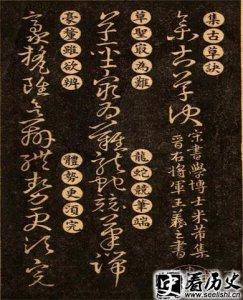 集古草訣
集古草訣
宋書學博士米芾集
晉右將軍王羲之書
草聖最為難
龍蛇競筆端
草聖最為難龍蛇競筆端
毫釐雖欲辨
體勢更須完
毫釐雖欲辨體勢更須完
看历史